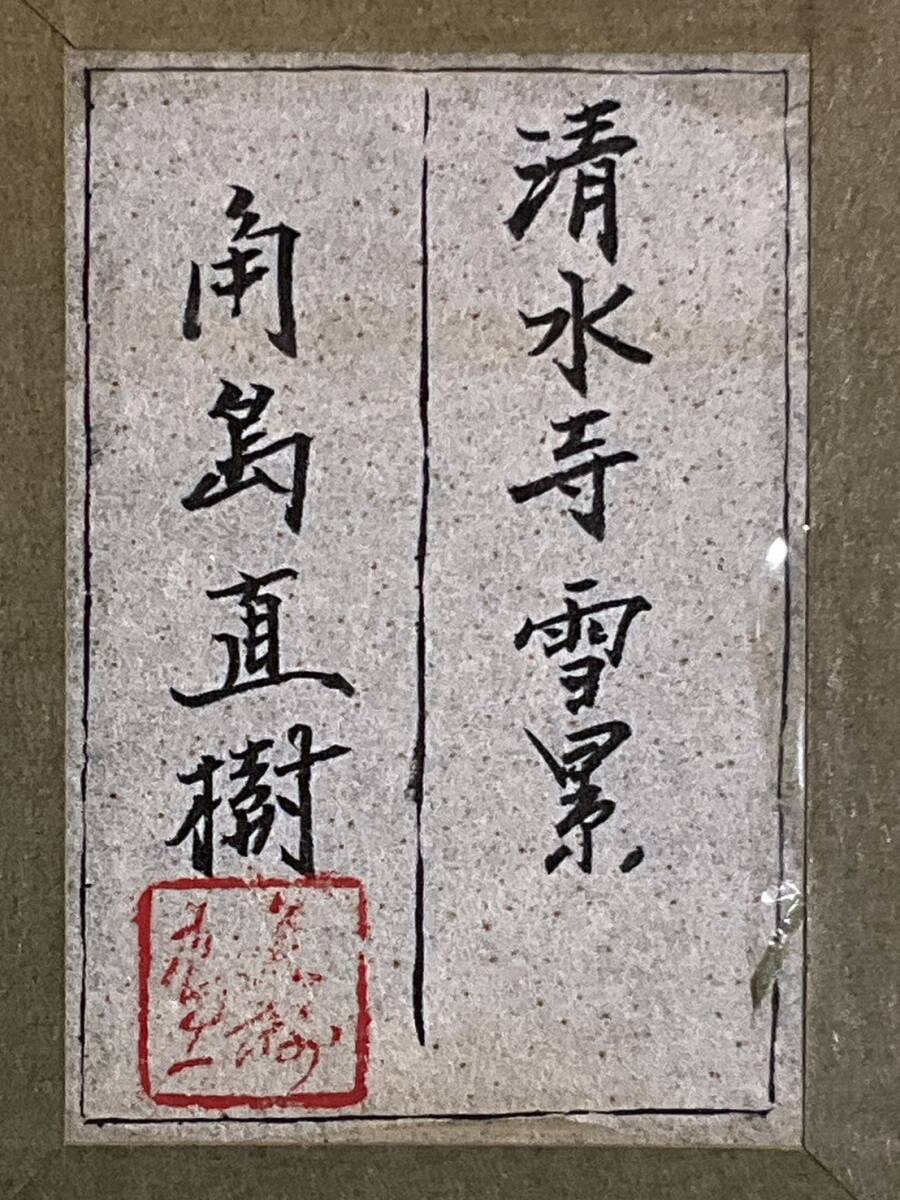 清水寺雪景
角島直樹